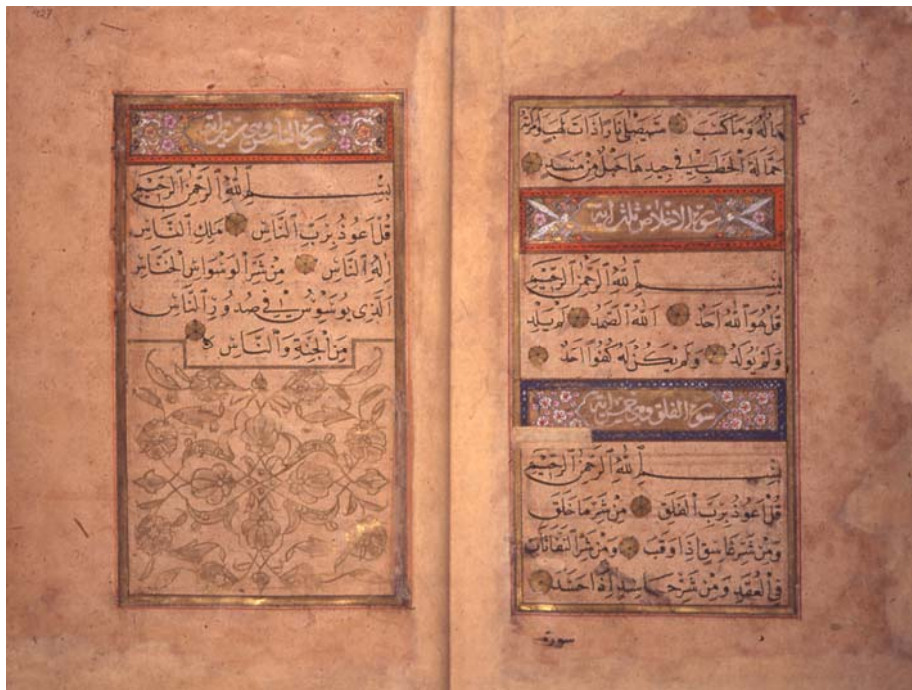 مَالُهُ وَمَا كَسَبَ سَيَصْلَىٰ نَارًا ذَاتَ لَهَبٍ وَامْرَأَتُهُ
حَمَّالَةَ ٱلْحَطَبِ فِي جِيدِهَا حَبْلٌ مِنْ مَسَدٍ
سورة الاخلاص اية
بِسْمِ ٱللّٰهِ ٱلرَّحْمٰنِ ٱلرَّحِيمِ
قُلْ هُوَ ٱللّٰهُ اَحَدٌ ٱللّٰهُ ٱلصَّمَدُ لَمْ يَلِدْ
وَلَمْ يُولَدْ وَلَمْ يَكُنْ لَهُ كُفُوًا اَحَدٌ
سورة الفلق وهي خمس اية
بِسْمِ ٱللّٰهِ ٱلرَّحْمٰنِ ٱلرَّحِيمِ
قُلْ اَعُوذُ بِرَبِّ ٱلْفَلَقِ مِنْ شَرِّ مَا خَلَقَ
وَمِنْ شَرِّ غَاسِقٍ اِذَا وَقَبَ وَمِنْ شَرِّ ٱلنَّفَّاثَاتِ
فِي ٱلْعُقَدِ وَمِنْ شَرِّ حَاسِدٍ اِذَا حَسَدَ
سورة
سورة الناس وهي اية
بِسْمِ ٱللّٰهِ ٱلرَّحْمٰنِ ٱلرَّحِيمِ
قُلْ اَعُوذُ بِرَبِّ ٱلنَّاسِ مَلِكِ ٱلنَّاسِ
اِلٰهِ ٱلنَّاسِ مِنْ شَرِّ ٱلْوَسْوَاسِ ٱلْخَنَّاسِ
ٱلَّذِي يُوَسْوِسُ فِي صُدُورِ ٱلنَّاسِ
مِنَ ٱلْجِنَّةِ وَٱلنَّاسِ